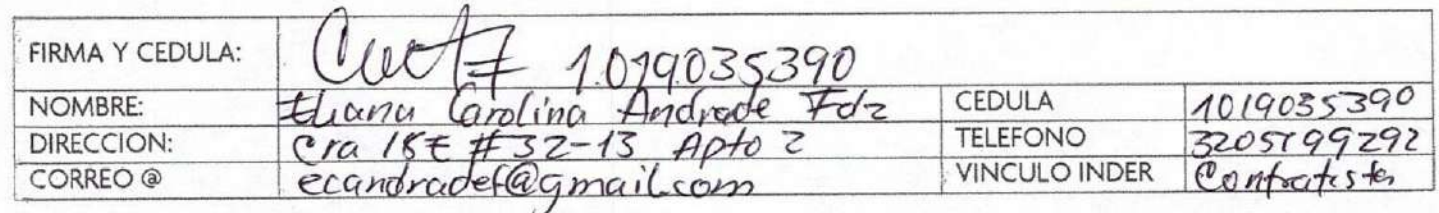 FIRMA Y CEDULA: 1.019035390
NOMBRE: Eliana Carolina Andrade Fdz CEDULA 1019035390
DIRECCION: Cra 15E #32-13 Apto 2 TELEFONO 3205199292
CORREO @ ecandradef@gmail.com VINCULO INDER Contratista